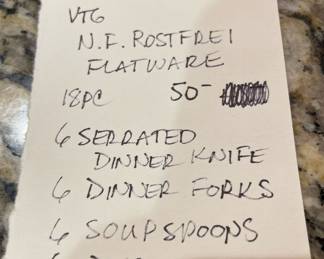 VTG
N.F. ROSTFREI
FLATWARE
18PC 50-
6 SERRATED
DINNER KNIFE
6 DINNER FORKS
6 SOUP SPOONS